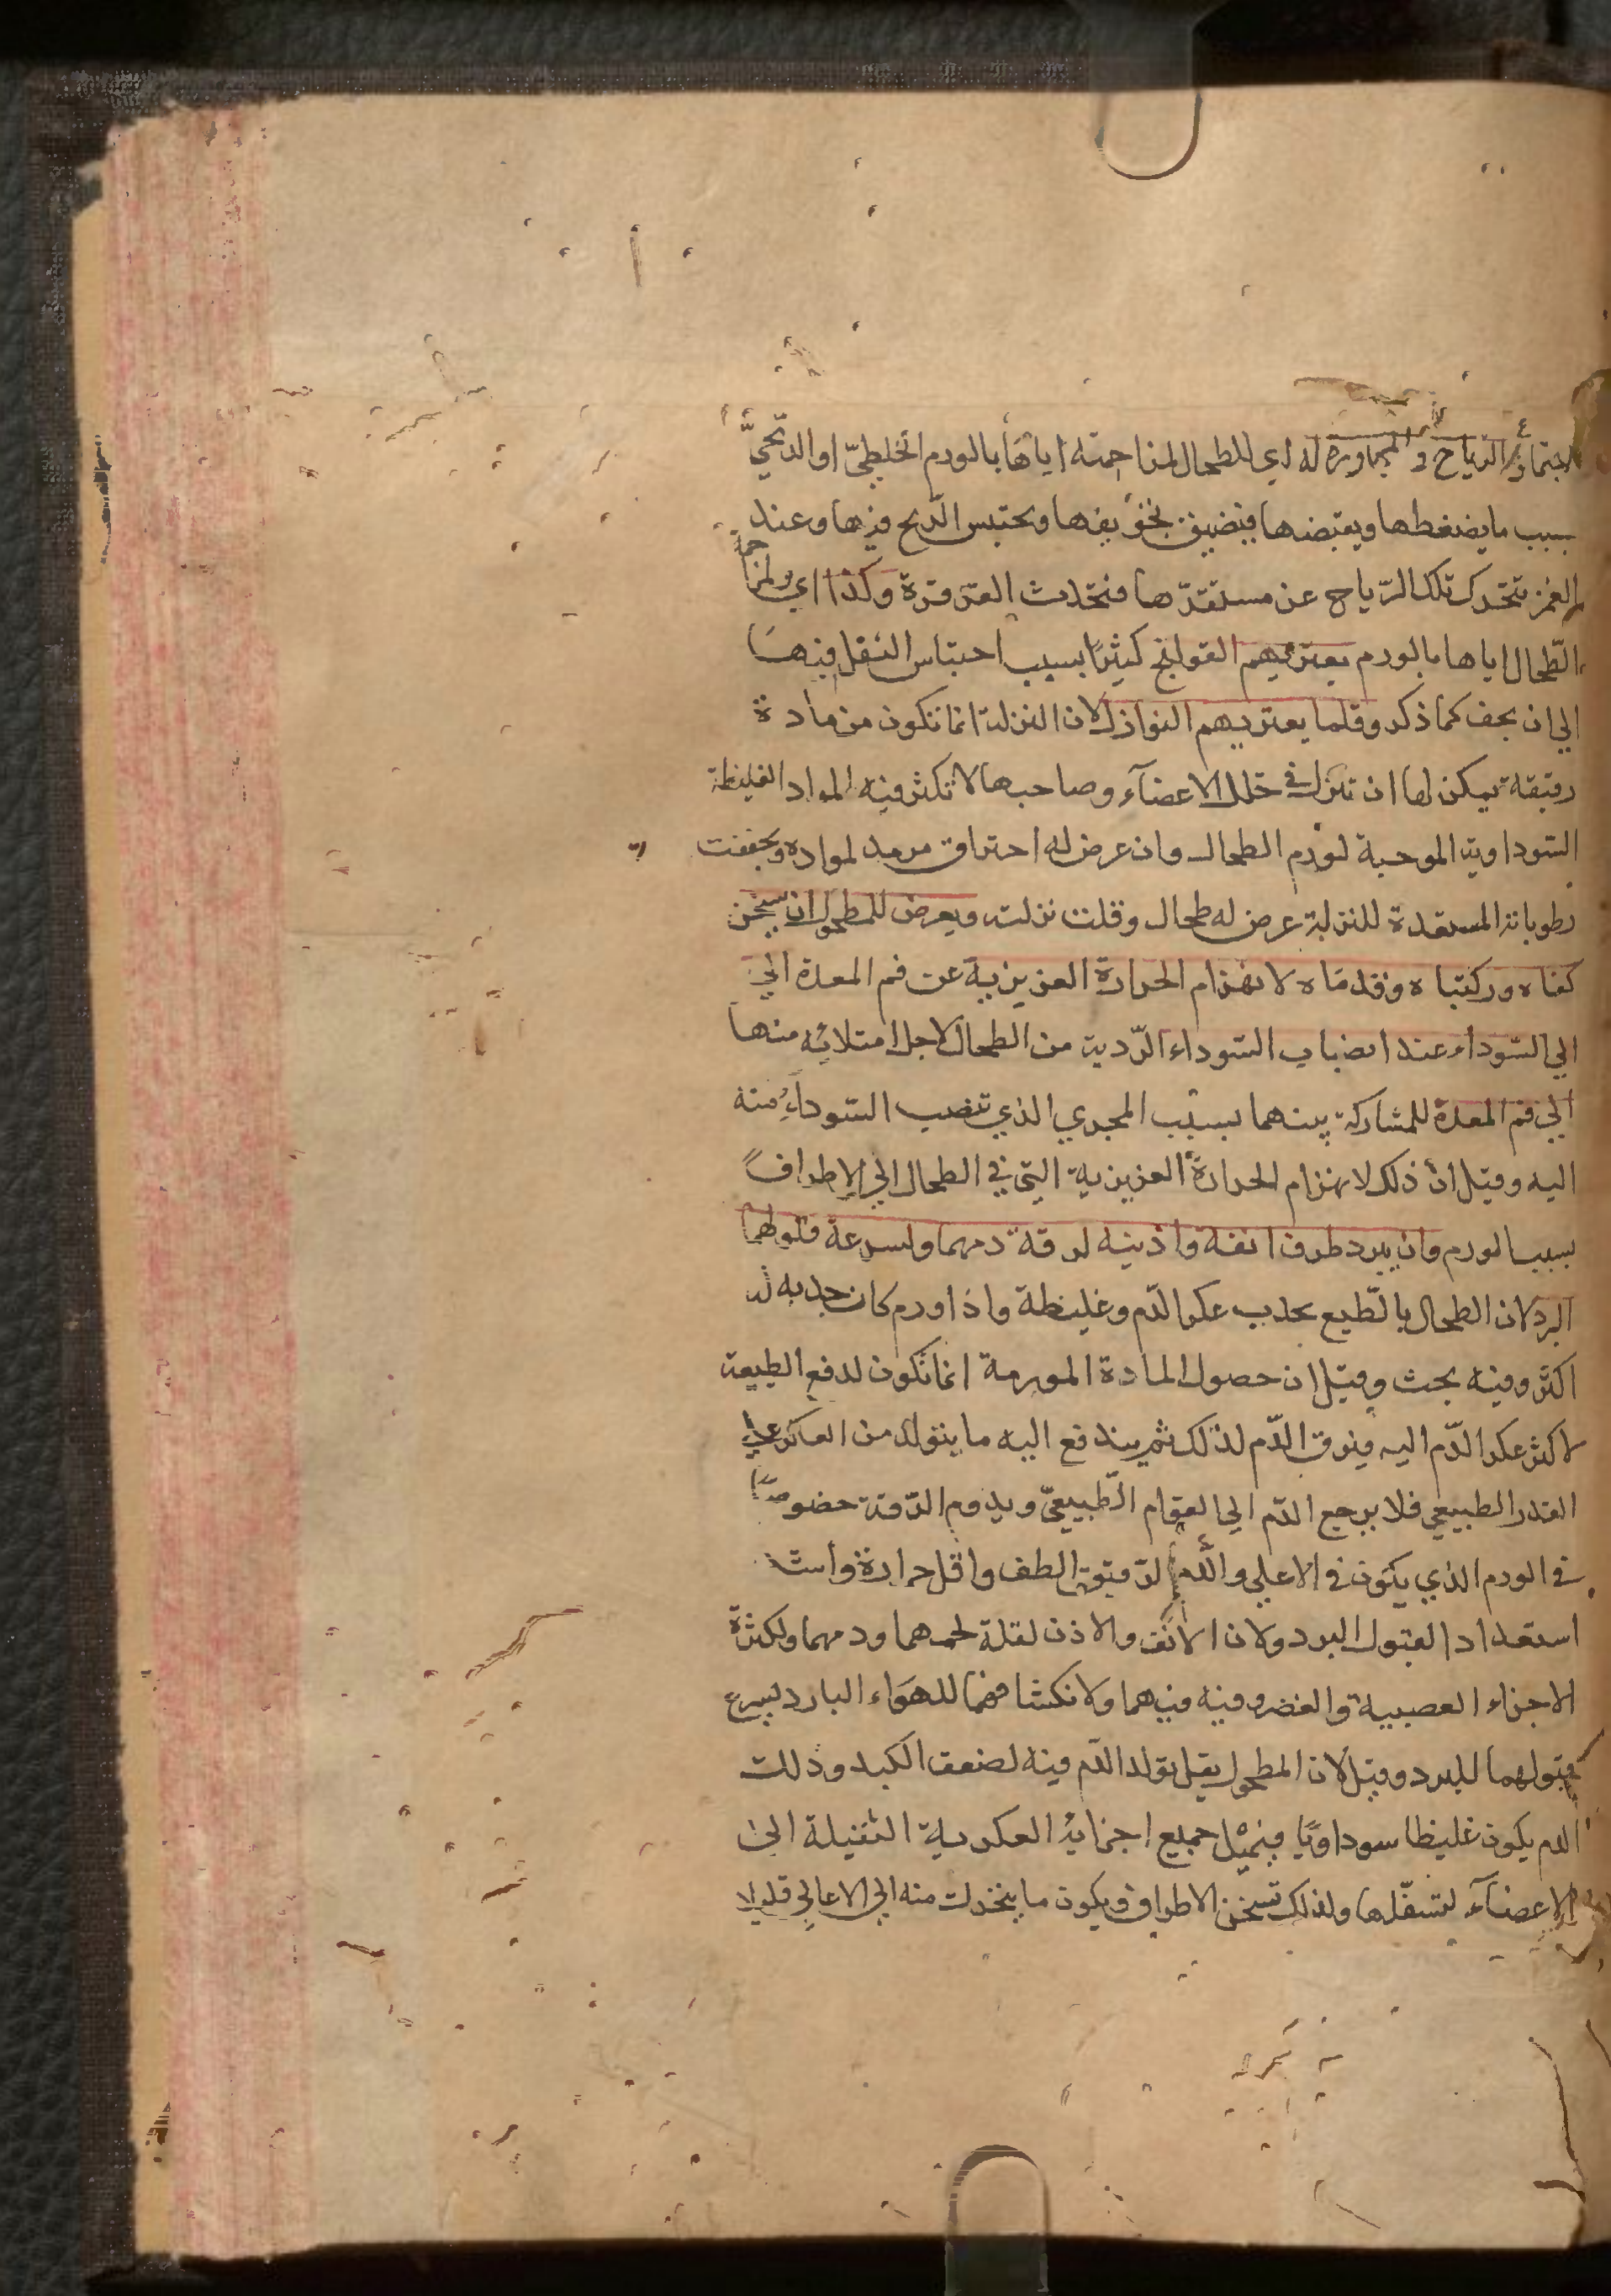 لاجتماع الرياح و المجاورة له اي للطحال لمزاحمته اياها بالورم الخلطيّ او الريحيّ
بسبب ما يضغطها ويقبضها فيضيق تجويفها ويحتبس الريح فيها وعند
الغمز تتحرك تلك الرّياح عن مستقرّها فتحدث القرقرة وكذا اي ولمزاحمة
الطّحال اياها بالورم يعتريهم القولنج كثيرًا بسبب احتباس الثفل فيها
الي ان يجف كما ذكر وقلما يعتريهم النوازل لان النزلة انما تكون من مادة
رقيقة يمكن لها ان تنزل في خلل الاعضآء وصاحبها لا تكثر فيه المواد الغليظة
السّوداوية الموجبة لورم الطحال وان عرض له احتراق مرمد لمواده وتجففت
رطوباته المستعدة للنزلة عرض له طحال وقلت نزلته ويعرض للمطحول ان يسخن
كفاه وركبتاه وقدماه لانهزام الحرارة الغريزية عن فم المعدة الي
الي السّوداء عند انصباب السّوداء الرّدية من الطحال لاجل امتلائه منها
الي فم المعدة للمشاركة بينهما بسبب المجري الذي تنصب السّوداء منه
اليه وقيل انّ ذلك لانهزام الحرارة الغريزية التي في الطحال الي الاطراف
بسبب الورم وان يبرد طرف انفه واذنيه لرقة دمهما ولسرعة قبولهما
البرد لان الطحال بالطّبع يجذب عكر الدّم وغليظه واذا ورم كان جذبه له
اكثر وفيه بحث وقيل ان حصول المادة المورمة انما تكون لدفع الطبيعة
لاكثر عكر الدّم اليه فيرق الدّم لذلك ثم يندفع اليه ما يتولد من العكر علي
القدر الطبيعي فلا يرجع الدّم الي القوام الطّبيعيّ ويدوم الرّقة خصوصًا
في الورم الذي يكون في الاعلي والدّم الرّقيق الطف واقل حرارة واشد
استعدادا لقبول البرد ولان الانف والاذن لقلة لحمهما ودمهما ولكثرة
الاجزاء العصبية والغضروفية فيهما ولانكشافهما للهوَاء البارد يسرع
قبولهما للبرد وقيل لان المطحول يقل تولد الدّم فيه لضعف الكبد وذلك
الدم يكون غليظا سوداويّا فيميل جميع اجزائه العكرية الثقيلة الي
الاعضآء لتسفّلها ولذلك تسخن الاطراف ويكون ما ينحرك منه الي الاعالي قليلا